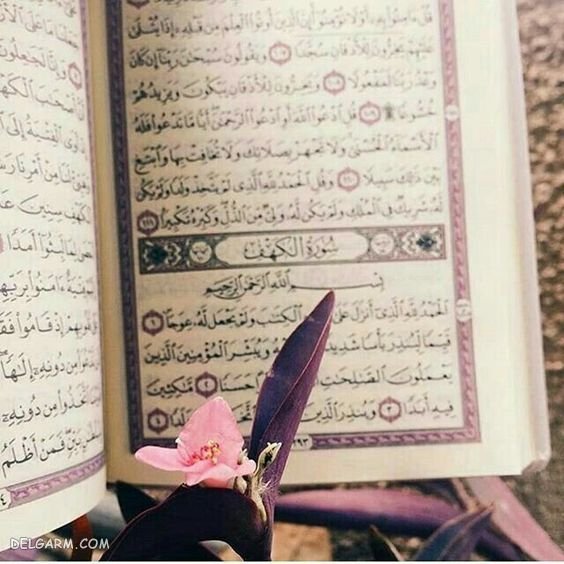 قُلْ ءَامِنُوا۟ بِهِۦٓ أَوْ لَا تُؤْمِنُوٓا۟ إِنَّ ٱلَّذِينَ أُوتُوا۟ ٱلْعِلْمَ مِن قَبْلِهِۦٓ إِذَا يُتْلَىٰ
عَلَيْهِمْ يَخِرُّونَ لِلْأَذْقَانِ سُجَّدًا ١٠٧ وَيَقُولُونَ سُبْحَٰنَ رَبِّنَآ إِن كَانَ
وَعْدُ رَبِّنَا لَمَفْعُولًا ١٠٨ وَيَخِرُّونَ لِلْأَذْقَانِ يَبْكُونَ وَيَزِيدُهُمْ
خُشُوعًا ۩ ١٠٩ قُلِ ٱدْعُوا۟ ٱللَّهَ أَوِ ٱدْعُوا۟ ٱلرَّحْمَٰنَ أَيًّا مَّا تَدْعُوا۟ فَلَهُ
ٱلْأَسْمَآءُ ٱلْحُسْنَىٰ وَلَا تَجْهَرْ بِصَلَاتِكَ وَلَا تُخَافِتْ بِهَا وَٱبْتَغِ
بَيْنَ ذَٰلِكَ سَبِيلًا ١١٠ وَقُلِ ٱلْحَمْدُ لِلَّهِ ٱلَّذِى لَمْ يَتَّخِذْ وَلَدًا وَلَمْ يَكُن
لَّهُۥ شَرِيكٌ فِى ٱلْمُلْكِ وَلَمْ يَكُن لَّهُۥ وَلِىٌّ مِّنَ ٱلذُّلِّ وَكَبِّرْهُ تَكْبِيرًۢا ١١١
سُورَةُ الكَهْفِ
بِسْمِ ٱللَّهِ ٱلرَّحْمَٰنِ ٱلرَّحِيمِ
ٱلْحَمْدُ لِلَّهِ ٱلَّذِىٓ أَنزَلَ عَلَىٰ ٱلْكِتَٰبَ وَلَمْ يَجْعَل لَّهُۥ عِوَجَا ١
قَيِّمًا لِّيُنذِرَ بَأْسًا شَدِيدًا وَيُبَشِّرَ ٱلْمُؤْمِنِينَ ٱلَّذِينَ
يَعْمَلُونَ ٱلصَّٰلِحَٰتِ حَسَنًا ٢ مَّٰكِثِينَ
فِيهِ أَبَدًا ٣ وَيُنذِرَ ٱلَّذِينَ وَلَدًا ٤
٢٩٣
جَعَلْنَا مَا عَلَى
وَإِنَّا لَجَٰعِلُونَ
أَنَّ أَصْحَٰبَ ٱلْكَهْفِ
أَوَى ٱلْفِتْيَةُ إِلَى
لَنَا مِنْ أَمْرِنَا
ٱلْكَهْفِ سِنِينَ
لِمَا لَبِثُوٓا۟ أَمَدًا
فِتْيَةٌ ءَامَنُوا۟ بِرَبِّهِمْ
إِذْ قَامُوا۟
مِن دُونِهِۦٓ إِلَٰهًا
ٱتَّخَذُوا۟ مِن دُونِهِۦٓ
بَيِّنٍ فَمَنْ أَظْلَمُ
DELGARM.COM